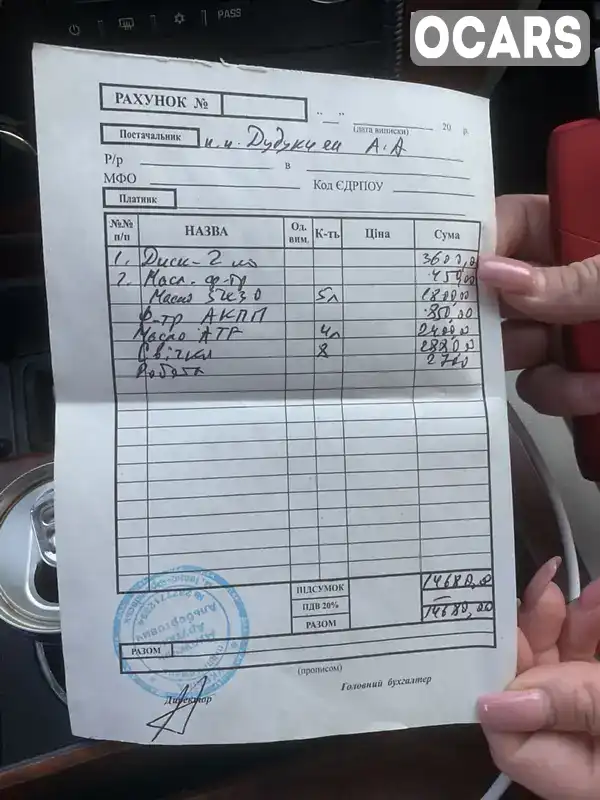 PASS
OCARS
РАХУНОК №
"__" 20 р.
(дата виписки)
Постачальник п.п. Дудукчян А.А
Р/р в
МФО Код ЄДРПОУ
Платник
№№ п/п НАЗВА Од. вим. К-ть Ціна Сума
1. Диск - 2 шт 3600,00
2. Масл. ф-тр 450,00
Масло 5W30 5л 1800,00
Ф-тр АКПП 850,00
Масло ATF 4л 2400,00
Свічки 8 2880,00
Робота 2700
ПІДСУМОК 14680,00
ПДВ 20% —
РАЗОМ 14680,00
РАЗОМ
(прописом)
Директор
Головний бухгалтер
Альбертович